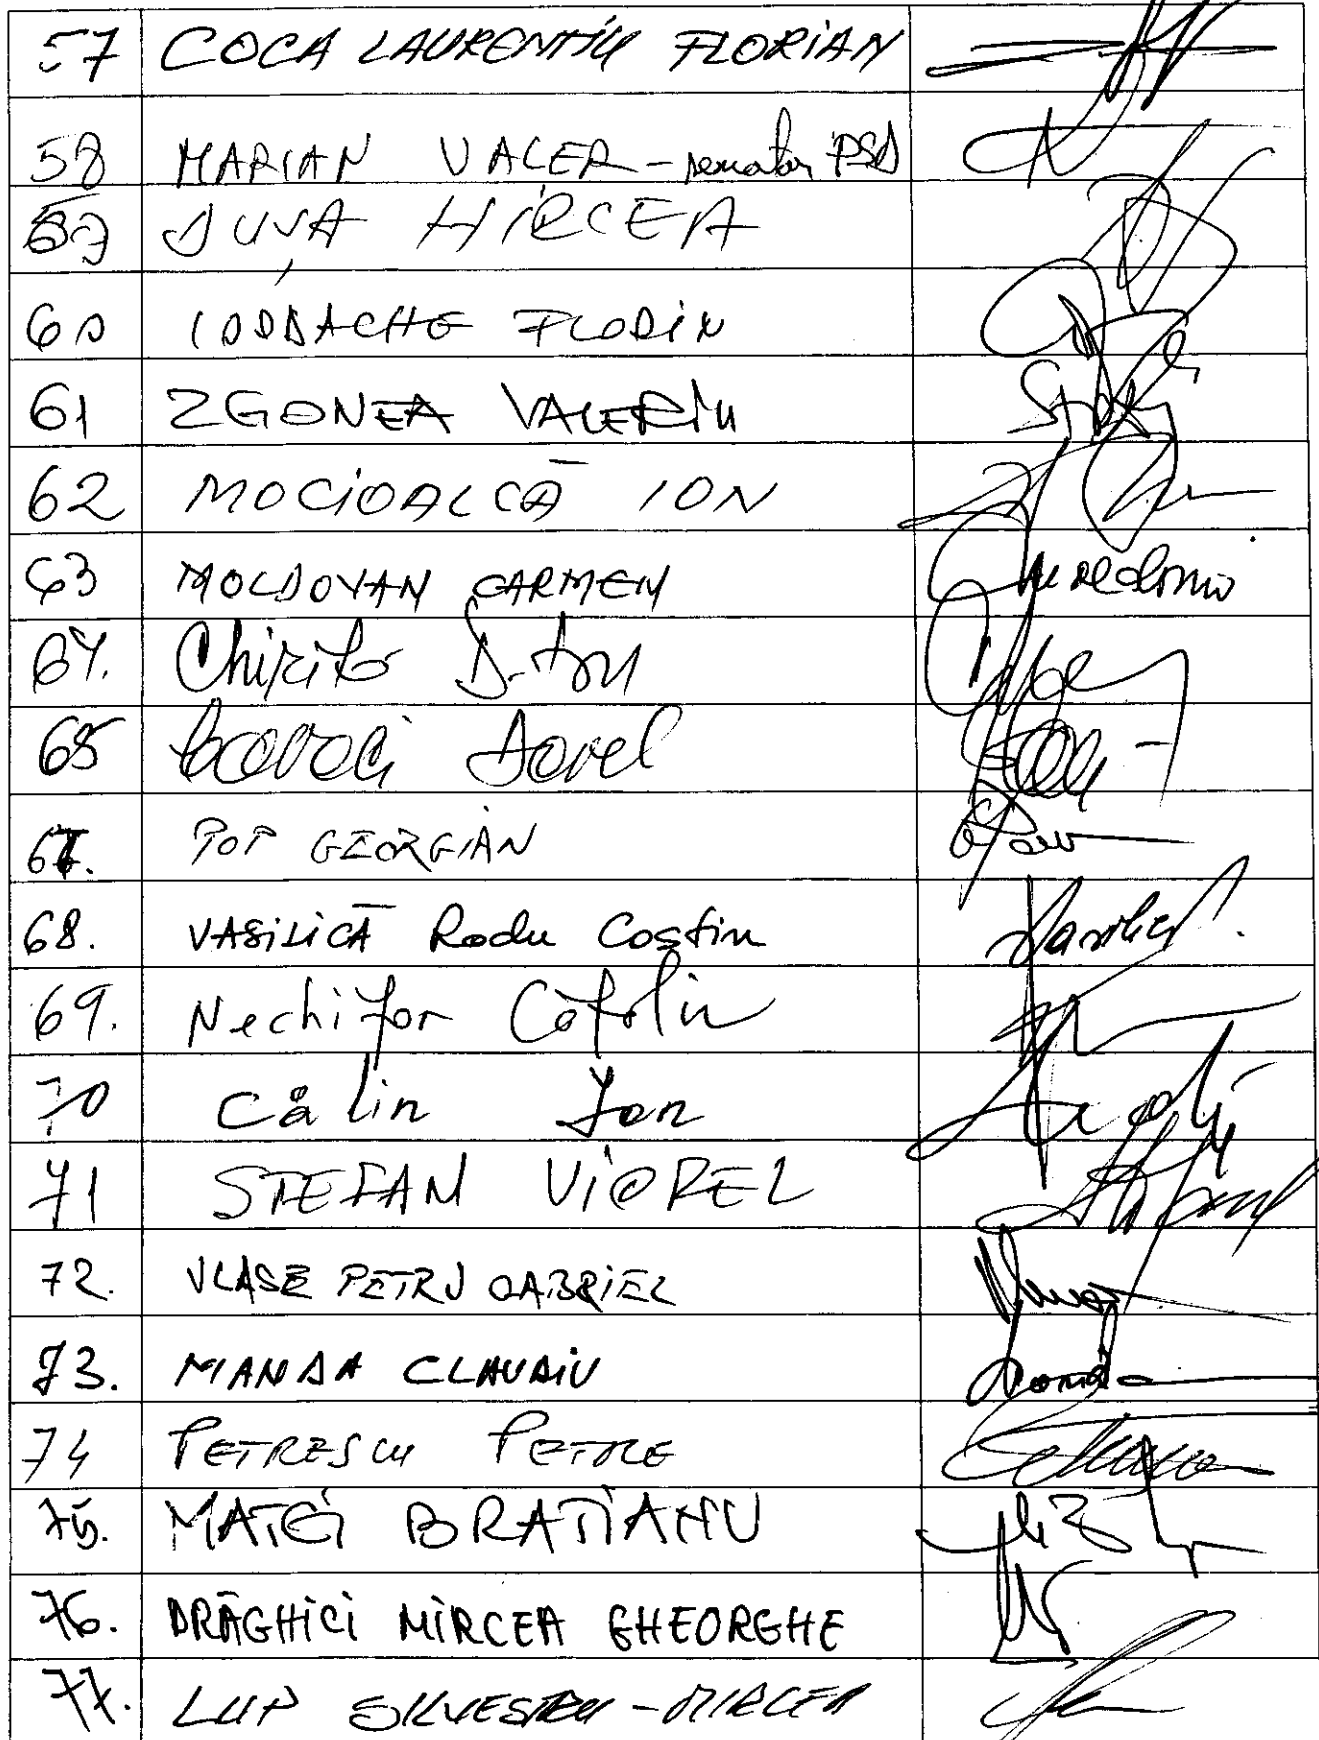 57 COCA LAURENȚIU FLORIAN
58 MARIAN VALER - senator PSD
59 DUȘA MIRCEA
60 IORDACHE FLORIN
61 ZGONEA VALERIU
62 MOCIOALCĂ ION
63 MOLDOVAN CARMEN
64. Chiriță D-tru
65 Covaci Dorel
67. POP GEORGIAN
68. VASILICĂ Radu Costin
69. Nechifor Cătălin
70 Călin Ion
71 STEFAN VIOREL
72. VLASE PETRU GABRIEL
73. MANDA CLAUDIU
74 PETRESCU PETRE
75. MATEI BRATIANU
76. DRĂGHICI MIRCEA GHEORGHE
77. LUP SILVESTRU-MIRCEA